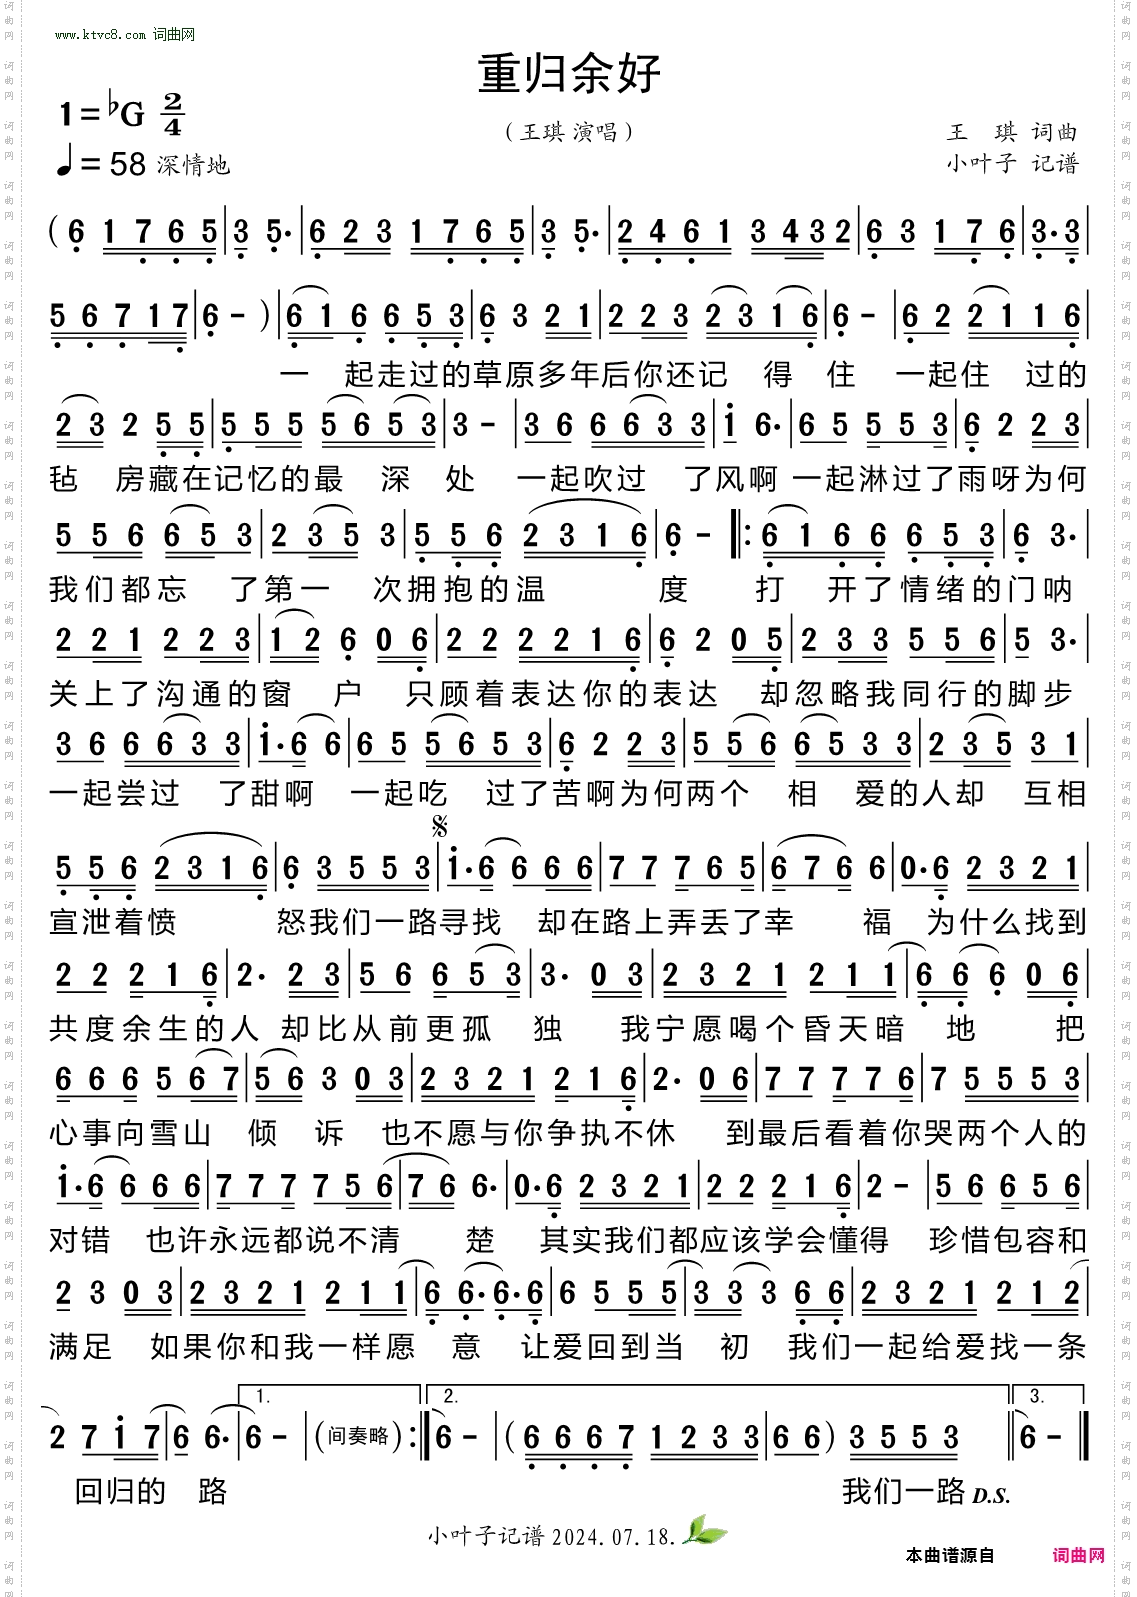 www.ktvc8.com 词曲网
重归余好
1=♭G 2/4
（王琪 演唱）
王 琪 词曲
♩=58 深情地
小叶子 记谱
( 6 1 7 6 5 | 3 5· | 6 2 3 1 7 6 5 | 3 5· | 2 4 6 1 3 4 3 2 | 6 3 1 7 6 | 3· 3 |
5 6 7 1 7 | 6 - ) | 6 1 6 6 5 3 | 6 3 2 1 | 2 2 3 2 3 1 6 | 6 - | 6 2 2 1 1 6 |
一 起走过的草原多年后你还记 得 住 一起住 过的
2 3 2 5 5 | 5 5 5 5 6 5 3 | 3 - | 3 6 6 6 3 3 | 1 6· | 6 5 5 5 3 | 6 2 2 3 |
毡 房藏在记忆的最 深 处 一起吹过 了风啊 一起淋过了雨呀为何
5 5 6 6 5 3 | 2 3 5 3 | 5 5 6 2 3 1 6 | 6 - ‖: 6 1 6 6 6 5 3 | 6 3· |
我们都忘 了第一 次拥抱的温 度 打 开了情绪的门呐
2 2 1 2 2 3 | 1 2 6 0 6 | 2 2 2 2 1 6 | 6 2 0 5 | 2 3 3 5 5 6 | 5 3· |
关上了沟通的窗 户 只顾着表达你的表达 却忽略我同行的脚步
3 6 6 6 3 3 | 1· 6 6 | 6 5 5 6 5 3 | 6 2 2 3 | 5 5 6 6 5 3 3 | 2 3 5 3 1 |
一起尝过 了甜啊 一起吃 过了苦啊为何两个 相 爱的人却 互相
5 5 6 2 3 1 6 | 6 3 5 5 3 | 𝄋 1· 6 6 6 6 | 7 7 7 6 5 | 6 7 6 6 | 0· 6 2 3 2 1 |
宣泄着愤 怒我们一路寻找 却在路上弄丢了幸 福 为什么找到
2 2 2 1 6 | 2· 2 3 | 5 6 6 5 3 | 3· 0 3 | 2 3 2 1 2 1 1 | 6 6 6 0 6 |
共度余生的人 却比从前更孤 独 我宁愿喝个昏天暗 地 把
6 6 6 5 6 7 | 5 6 3 0 3 | 2 3 2 1 2 1 6 | 2· 0 6 | 7 7 7 7 6 | 7 5 5 5 3 |
心事向雪山 倾 诉 也不愿与你争执不休 到最后看着你哭两个人的
1· 6 6 6 6 | 7 7 7 7 5 6 | 7 6 6· | 0· 6 2 3 2 1 | 2 2 2 1 6 | 2 - | 5 6 6 5 6 |
对错 也许永远都说不清 楚 其实我们都应该学会懂得 珍惜包容和
2 3 0 3 | 2 3 2 1 2 1 1 | 6 6· 6· 6 | 6 5 5 5 | 3 3 3 6 6 | 2 3 2 1 2 1 2 |
满足 如果你和我一样愿 意 让爱回到当 初 我们一起给爱找一条
1. 2. 3.
2 7 1 7 | 6 6· | 6 - | (间奏略) :‖ 6 - | ( 6 6 6 7 1 2 3 3 | 6 6 ) 3 5 5 3 ‖ 6 - ‖
回归的 路 我们一路 D.S.
小叶子记谱 2024.07.18.
本曲谱源自 词曲网